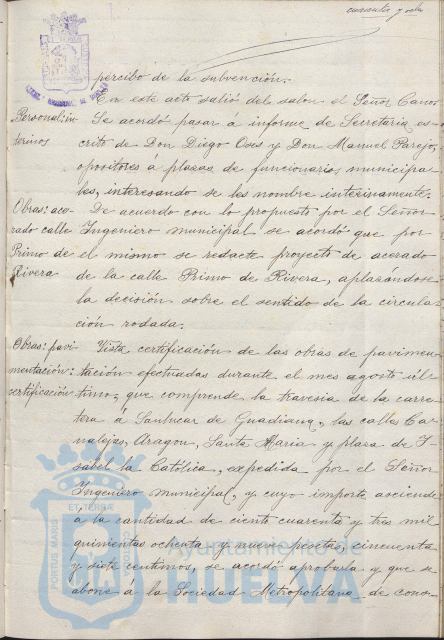 cuarenta y ocho
percibo de la subvención.
En este acto salió del salon el Señor Canos
Personal: in Se acordó pasar á informe de Secretaria es-
terinos crito de Don Diego Oses y Don Manuel Parejo,
opositores á plazas de funcionarios municipa
les, interesando se les nombre interinamente.
Obras: ace- De acuerdo con lo propuesto por el Señor
rado calle Ingeniero municipal se acordó que por
Primo de el mismo se redacte proyecto de acerado
Rivera de la calle Primo de Rivera, aplazándose
la decisión sobre el sentido de la circula
ción rodada.
Obras: pavi Vista certificación de las obras de pavimen
mentación: tación efectuadas durante el mes agosto úl
certificación timo, que comprende la travesia de la carre
tera á Sanlucar de Guadiana, las calles Ca
nalejas, Aragon, Santa Maria y plaza de I
sabel la Católica, expedida por el Señor
Ingeniero municipal, y cuyo importe asciende
a la cantidad de ciento cuarenta y tres mil
quinientas ochenta y nueve pesetas, cincuenta
y siete centimos, se acordó aprobarla y que se
abone á la Sociedad Metropolitana de cons-
PORTUS MARIS ET TERRAE
Ayuntamiento de
HUELVA